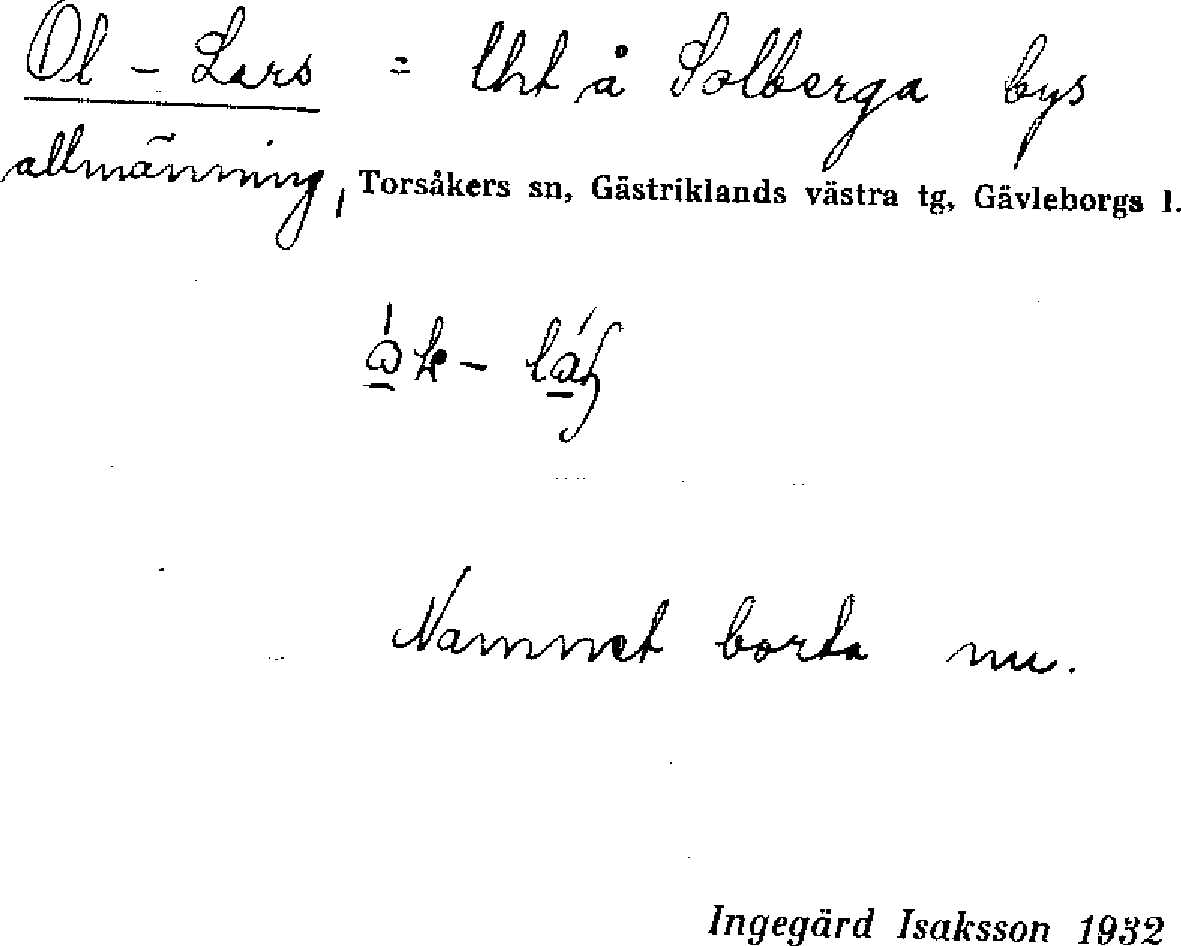 Ol - Lars = lht å Solberga bys
allmänning, Torsåkers sn, Gästriklands västra tg, Gävleborgs l.
Namnet borta nu.
Ingegärd Isaksson 1932